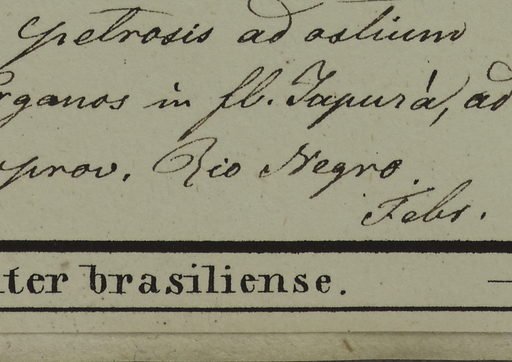 petrosis ad ostium
rganos in fl. Japurá, ad
prov. Rio Negro.
Febr.
iter brasiliense.